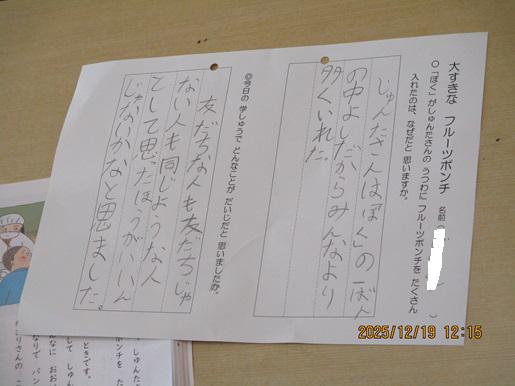 大すきな フルーツポンチ
名前（　　）
○「ぼく」がしゅんたさんの うつわに フルーツポンチを たくさん
入れたのは、なぜだと 思いますか。
じゅんたさんはぼく」のばん
の中よしだからみんなより
多くいれた。
◎今日の 学しゅうで どんなことが だいじだと 思いましたか。
友だちな人も友だちじゃ
ない人も同じような人
として思ったほうがいいん
じゃないかなと思ました。
2025/12/19 12:15